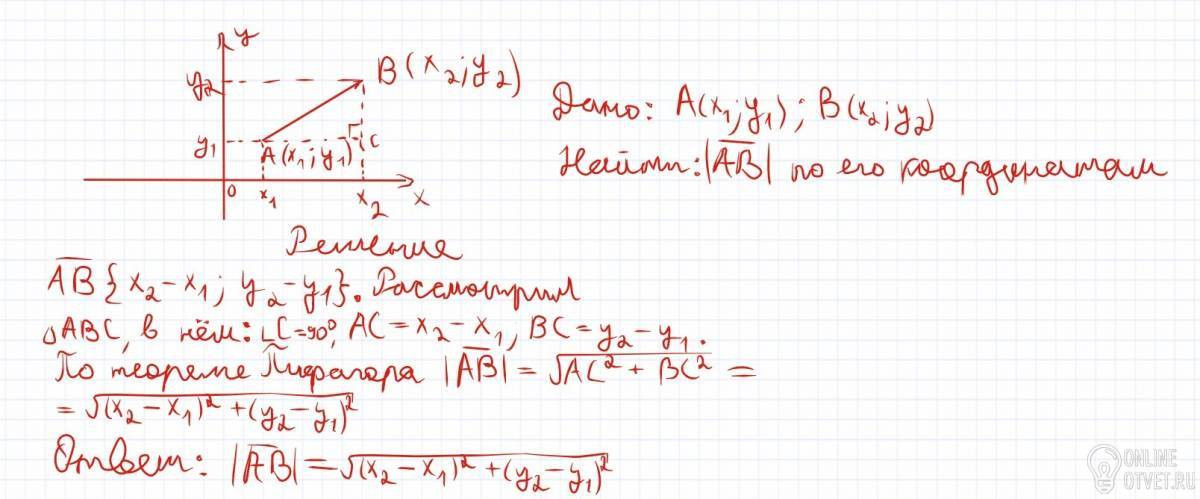 y
y₂
B(x₂; y₂)
y₁
A(x₁; y₁)
C
0
x₁
x₂
x
Дано: A(x₁; y₁); B(x₂; y₂)
Найти: |A̅B̅| по его координатам
Решение
A̅B̅ {x₂ − x₁; y₂ − y₁}. Рассмотрим
△ABC, в нём: ∟C=90°, AC = x₂ − x₁, BC = y₂ − y₁.
По теореме Пифагора |A̅B̅| = √AC² + BC² =
= √(x₂ − x₁)² + (y₂ − y₁)²
Ответ: |A̅B̅| = √(x₂ − x₁)² + (y₂ − y₁)²
ONLINE
OTVET.RU